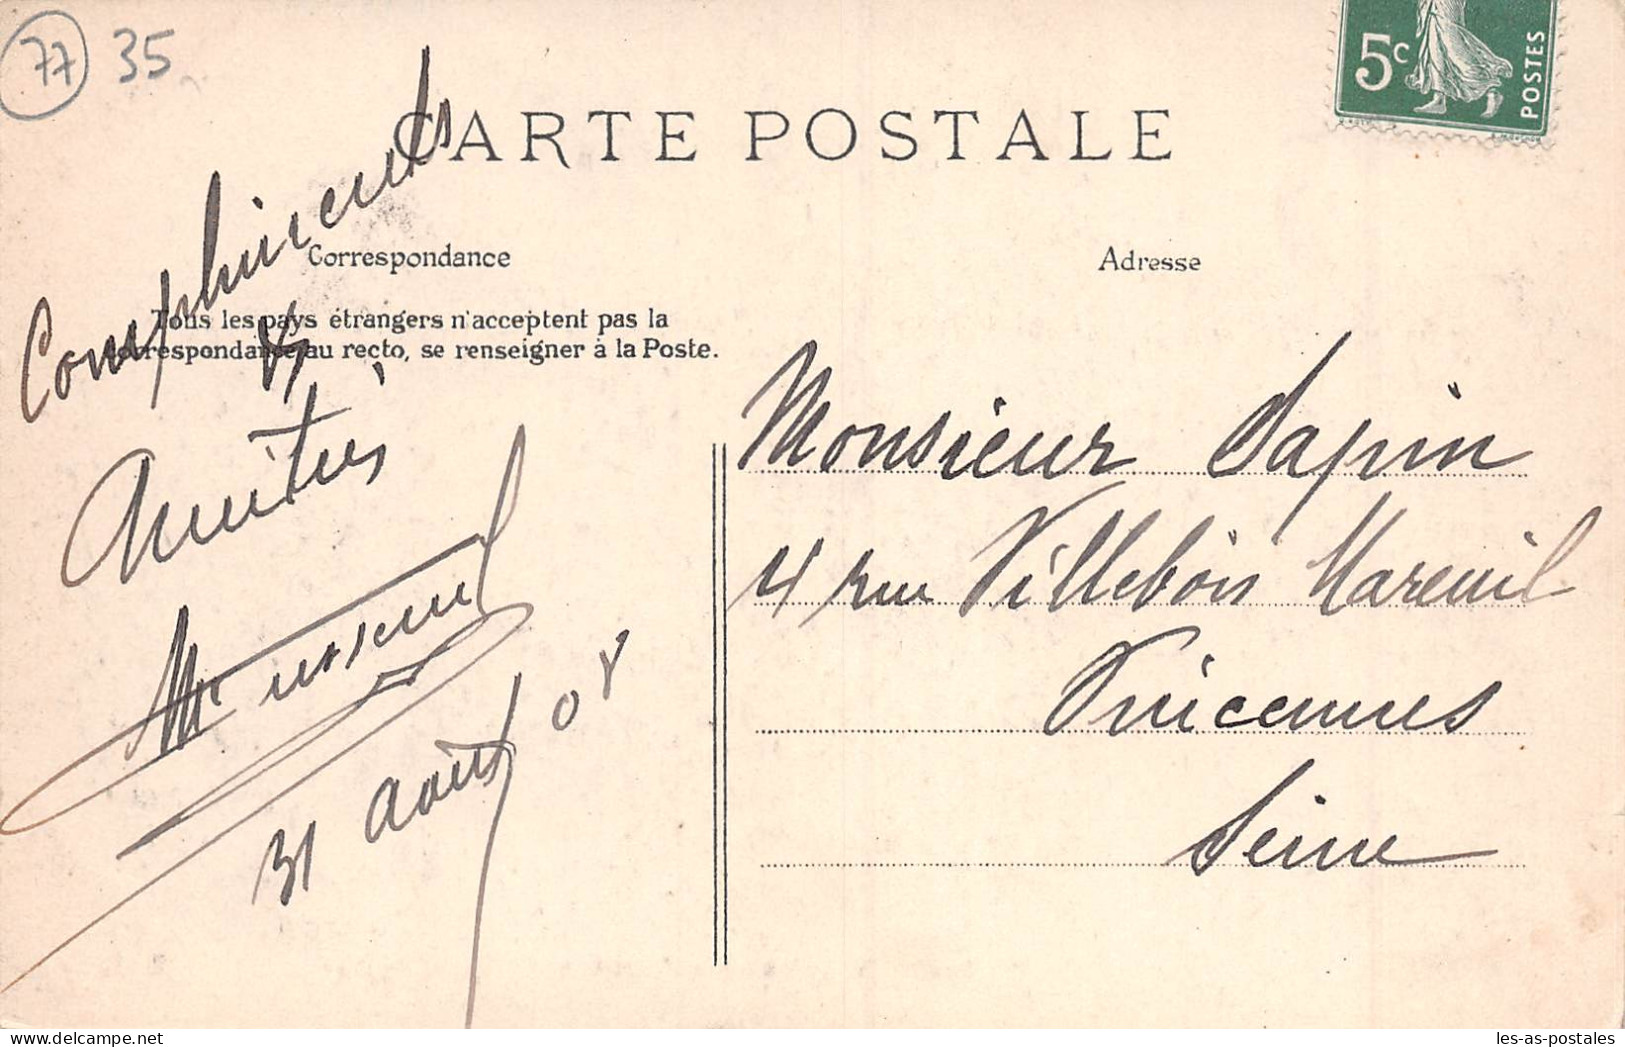 77 35
CARTE POSTALE
5c
POSTES
Correspondance
Adresse
Tous les pays étrangers n'acceptent pas la
correspondance au recto, se renseigner à la Poste.
Compliments
&
Amitiés
31 août 08
Monsieur Sapin
4 rue Villebois Mareuil
Vincennes
Seine
les-as-postales